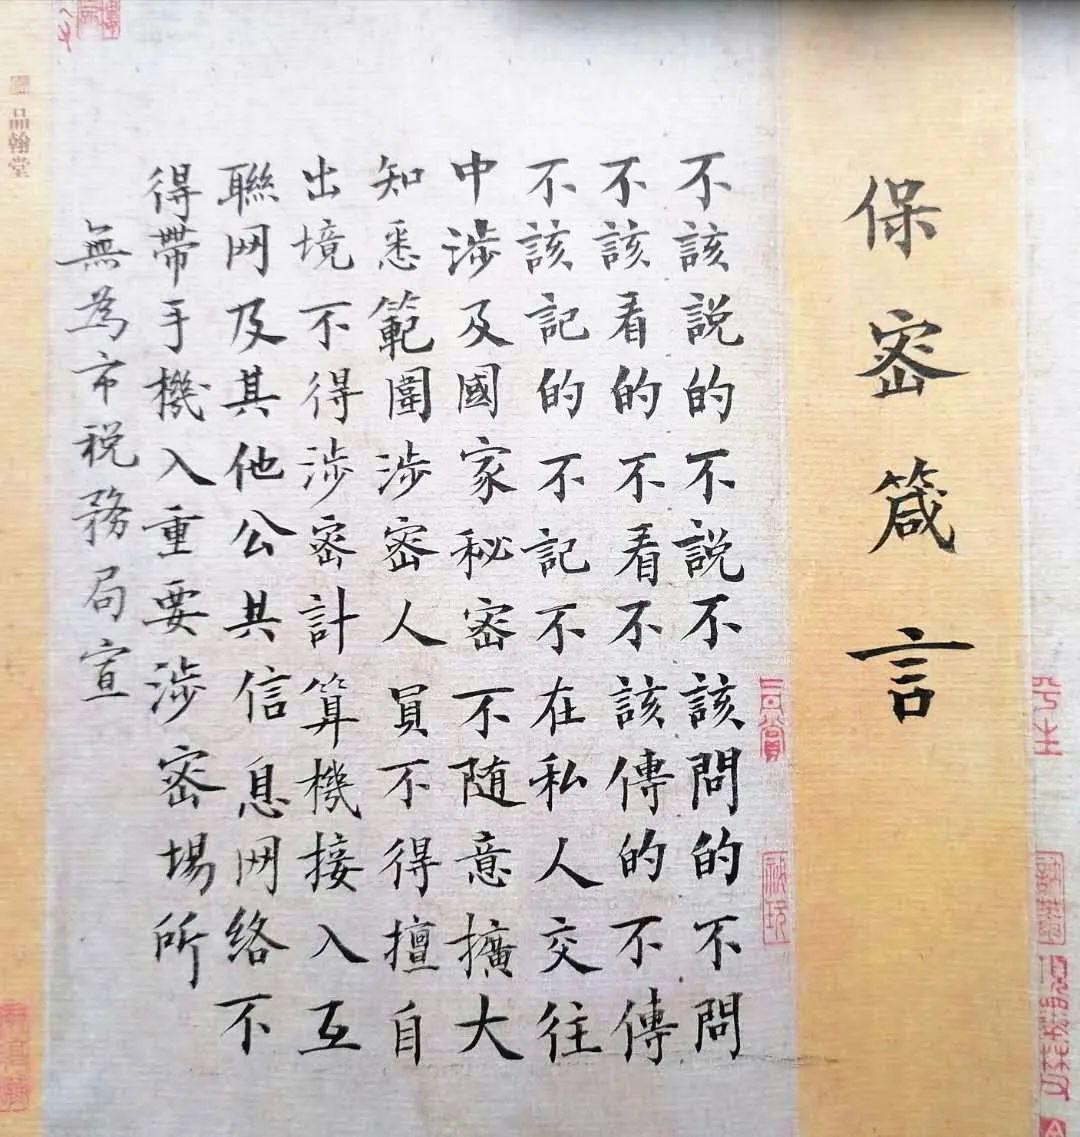 保密箴言
不該説的不説不該問的不問
不該看的不看不該傳的不傳
不該記的不記不在私人交往
中涉及國家秘密不随意擴大
知悉範圍涉密人員不得擅自
出境不得涉密計算機接入互
聯网及其他公共信息网絡不
得帶手機入重要涉密場所
無為市税務局宣
品翰堂